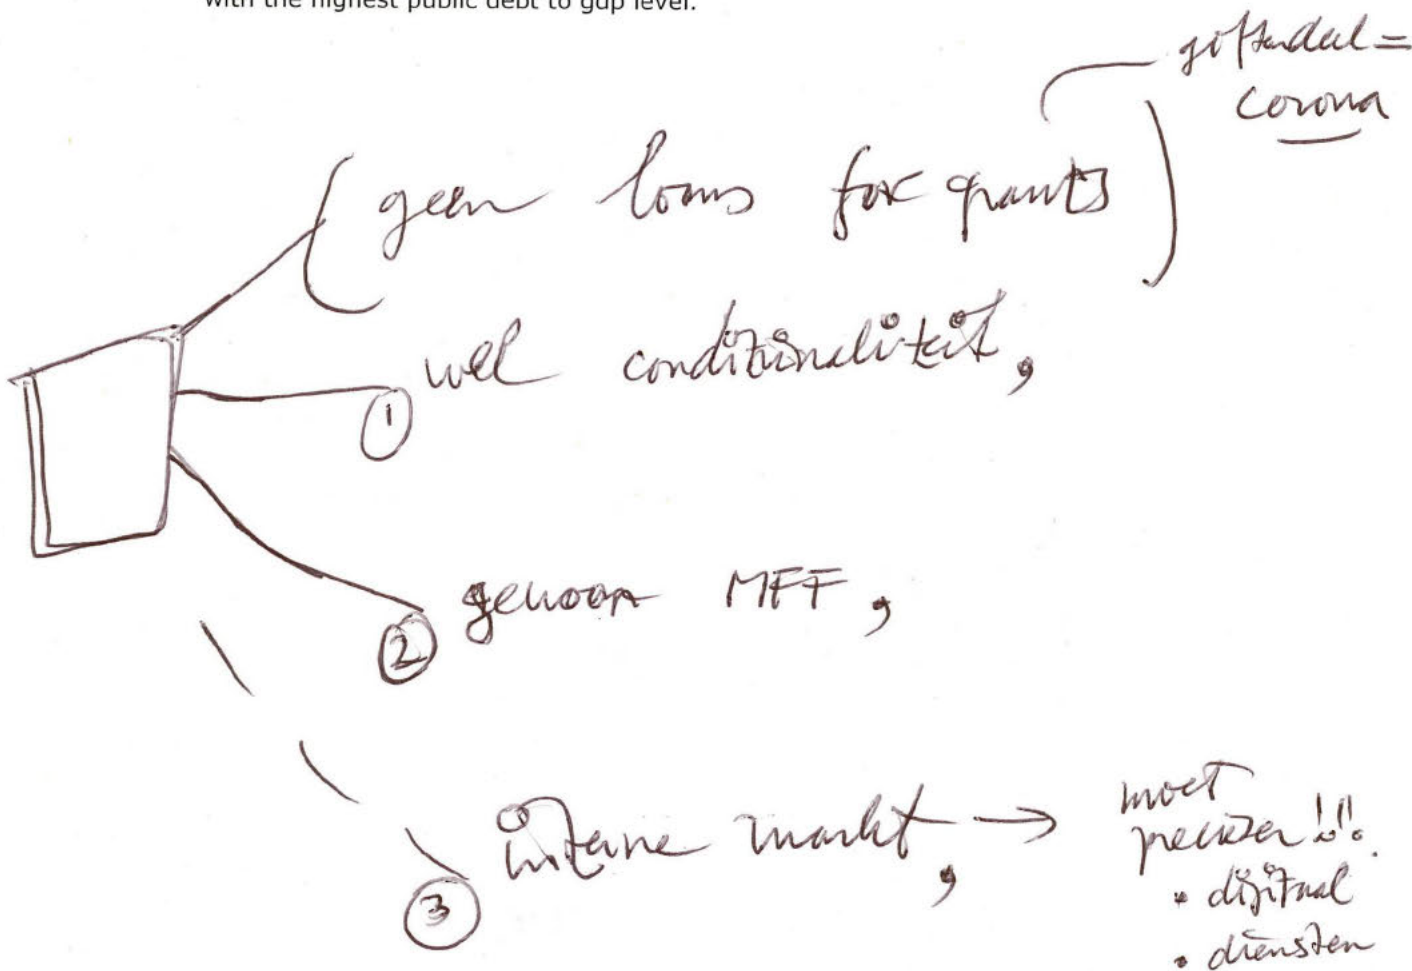 with the highest public debt to gdp level.
giftendeel =
corona
(geen loans for grants)
wel conditionaliteit,
1
gewoon MFF,
2
interne markt, → moet
preciezer !!!
• digitaal
• diensten
3